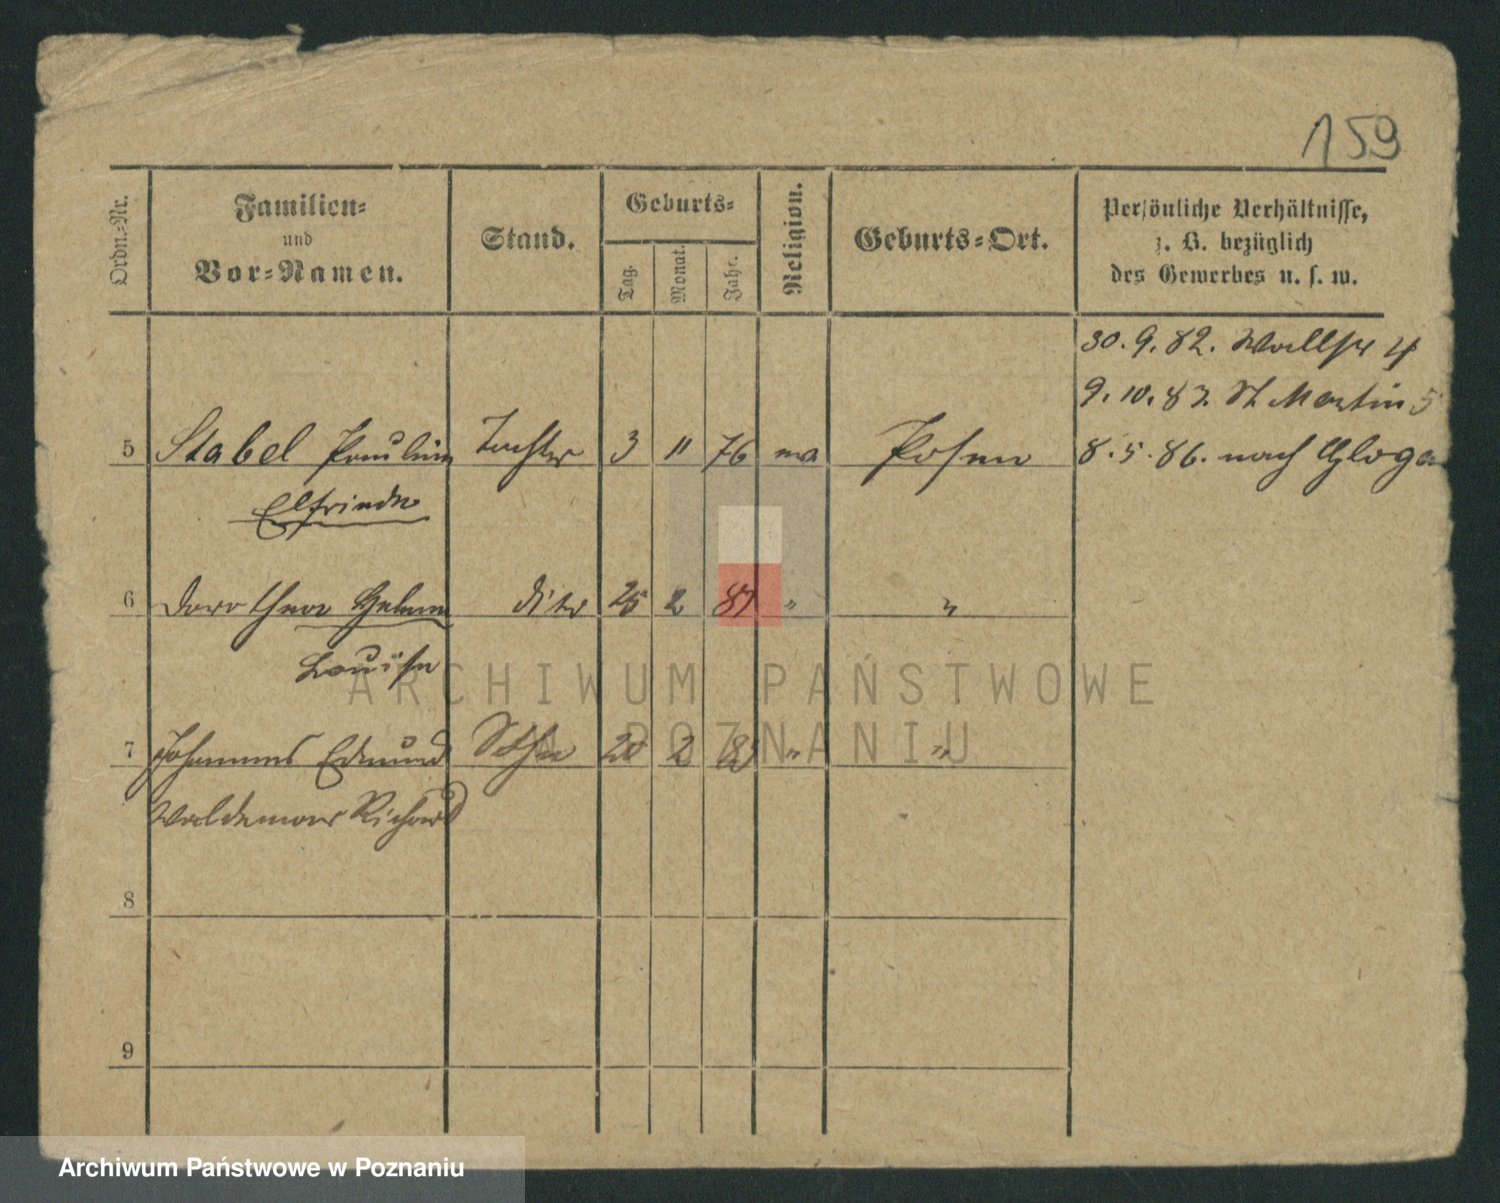 159
Ordn.-Nr.
Familien-
und
Vor-Namen.
Stand.
Geburts-
Tag.
Monat.
Jahr.
Religion.
Geburts-Ort.
Persönliche Verhältnisse,
z. B. bezüglich
des Gewerbes u. s. w.
30. 9. 82. Wallstr 4
9. 10. 83. St Martin 5
5 Stabel Pauline Tochter 3 11 76 Posen 8. 5. 86. nach Gloga
Elfriede
6 Dorothea Helene dito 25 2 " "
Louise
7 Johannes Edmund Sohn 20 2 " "
Waldemar Richard
8
9
ARCHIWUM PAŃSTWOWE
W POZNANIU
Archiwum Państwowe w Poznaniu